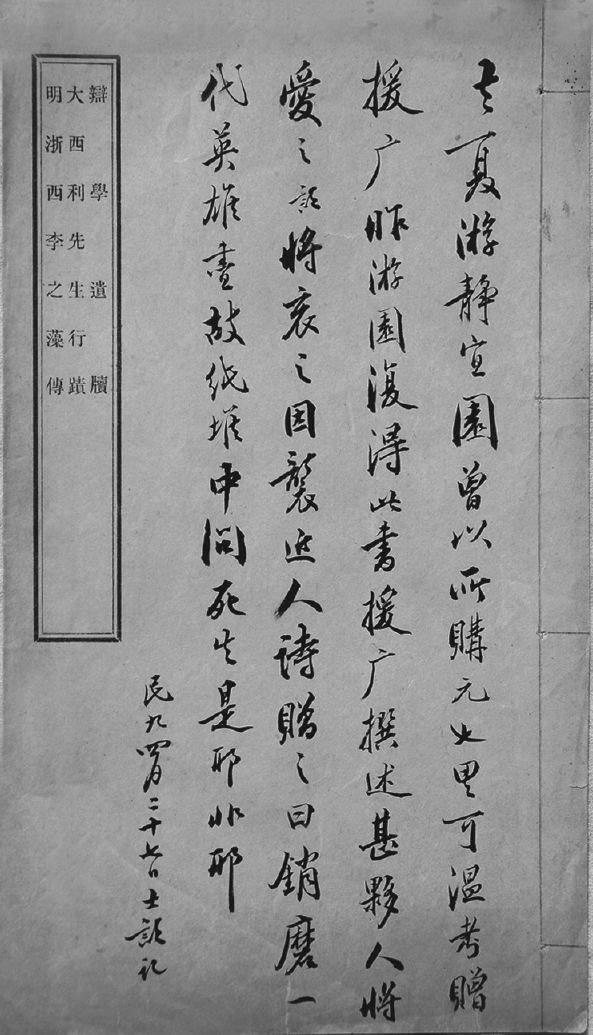 去夏游静宜園曾以所購元也里可温考贈
援广昨游園復得此書援广撰述甚夥人将
愛之詒将哀之因襲近人詩贈之曰銷磨一
代英雄盡故紙堆中問死生是耶非耶
民九四月二十七日士詒記
辯學遺牘
大西利先生行蹟
明浙西李之藻傳